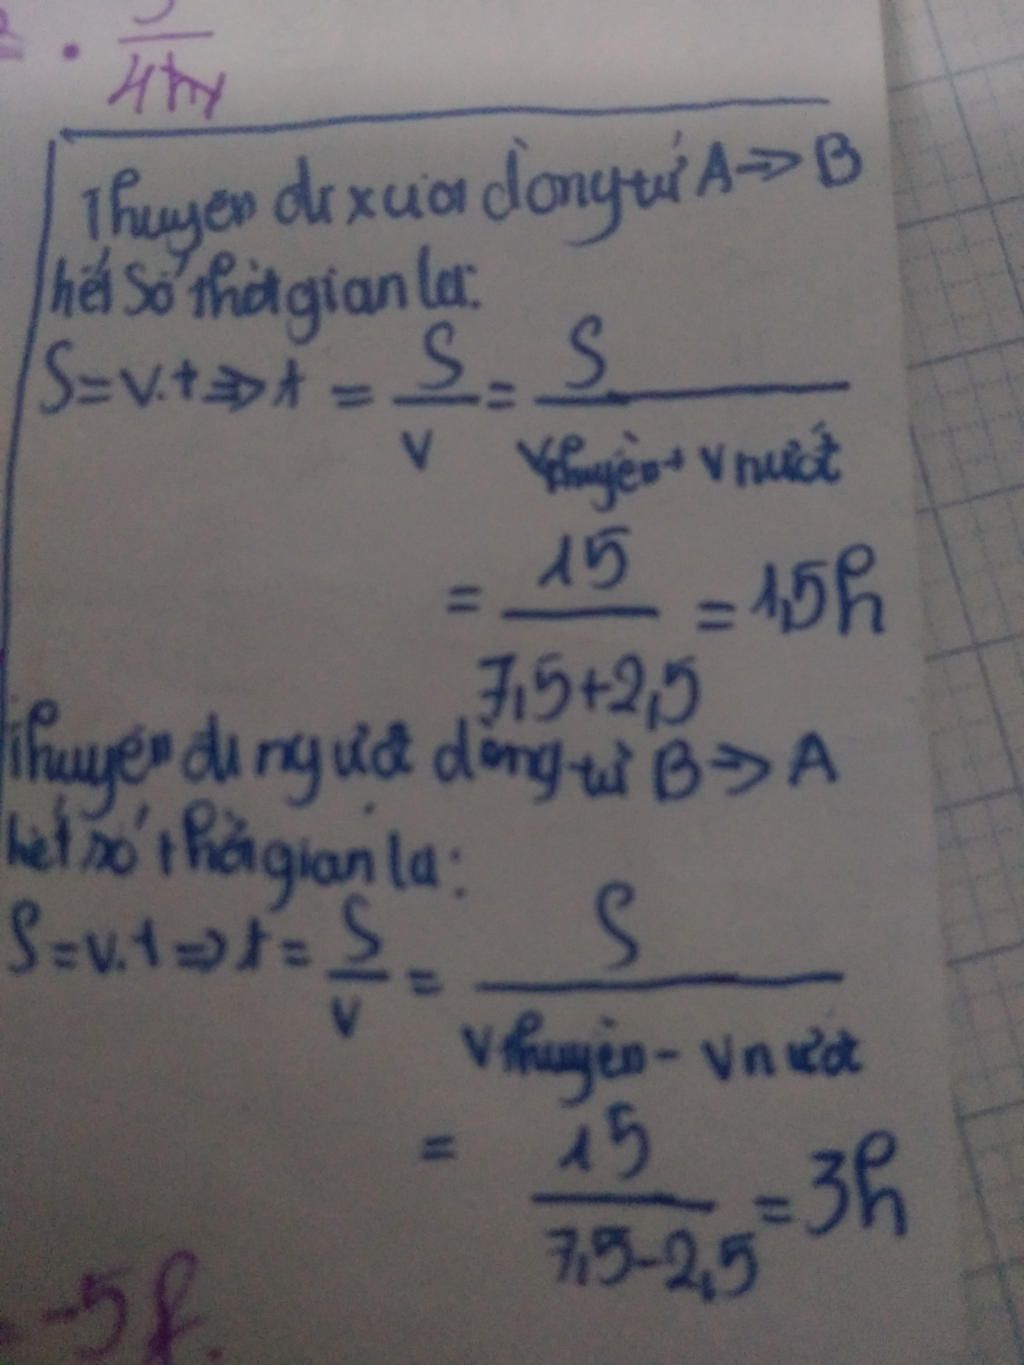 4π
Thuyền đi xuôi dòng từ A => B
hết số thời gian là:
S = v.t => t = S/v = S/(v thuyền + v nước)
= 15/(7,5+2,5) = 1,5h
Thuyền đi ngược dòng từ B => A
hết số thời gian là:
S = v.t => t = S/v = S/(v thuyền - v nước)
= 15/(7,5-2,5) = 3h